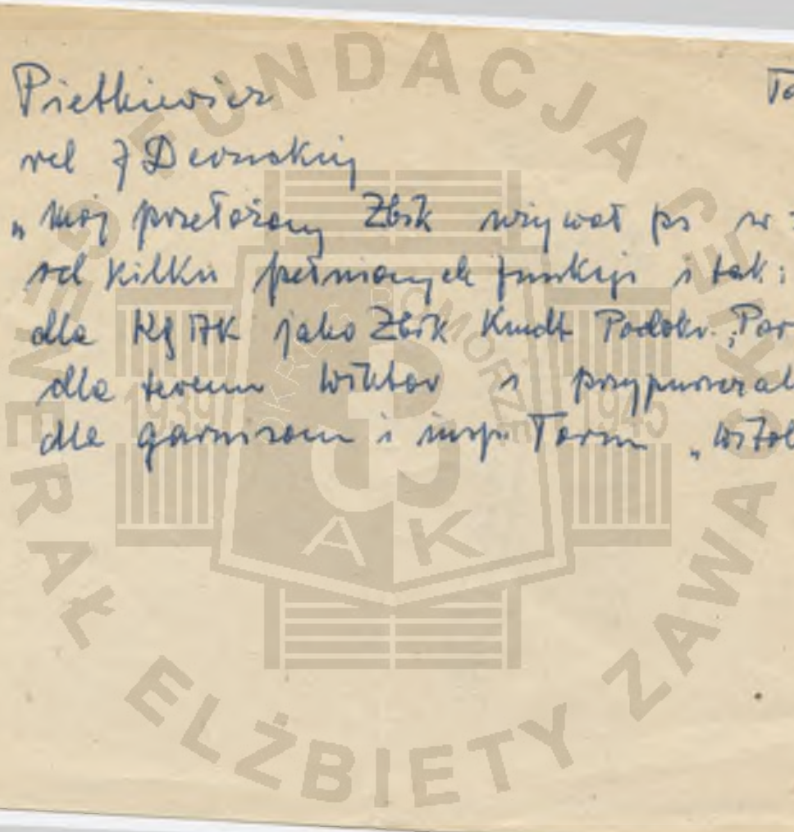 Pietkiewicz
rel J Dewnskiej
„Mój przełożony Zbik używał ps w
od kilku pełnionych funkcji i tak:
dla KG AK jako Zbik Kmdt Podokr.
dla terenu Wiktor i przypuszczal
dla garnizonu i insp. Toruń „Witol
FUNDACJA GENERAŁ ELŻBIETY ZAWAC
OKRĘG POMORZE
1939 1945
AK